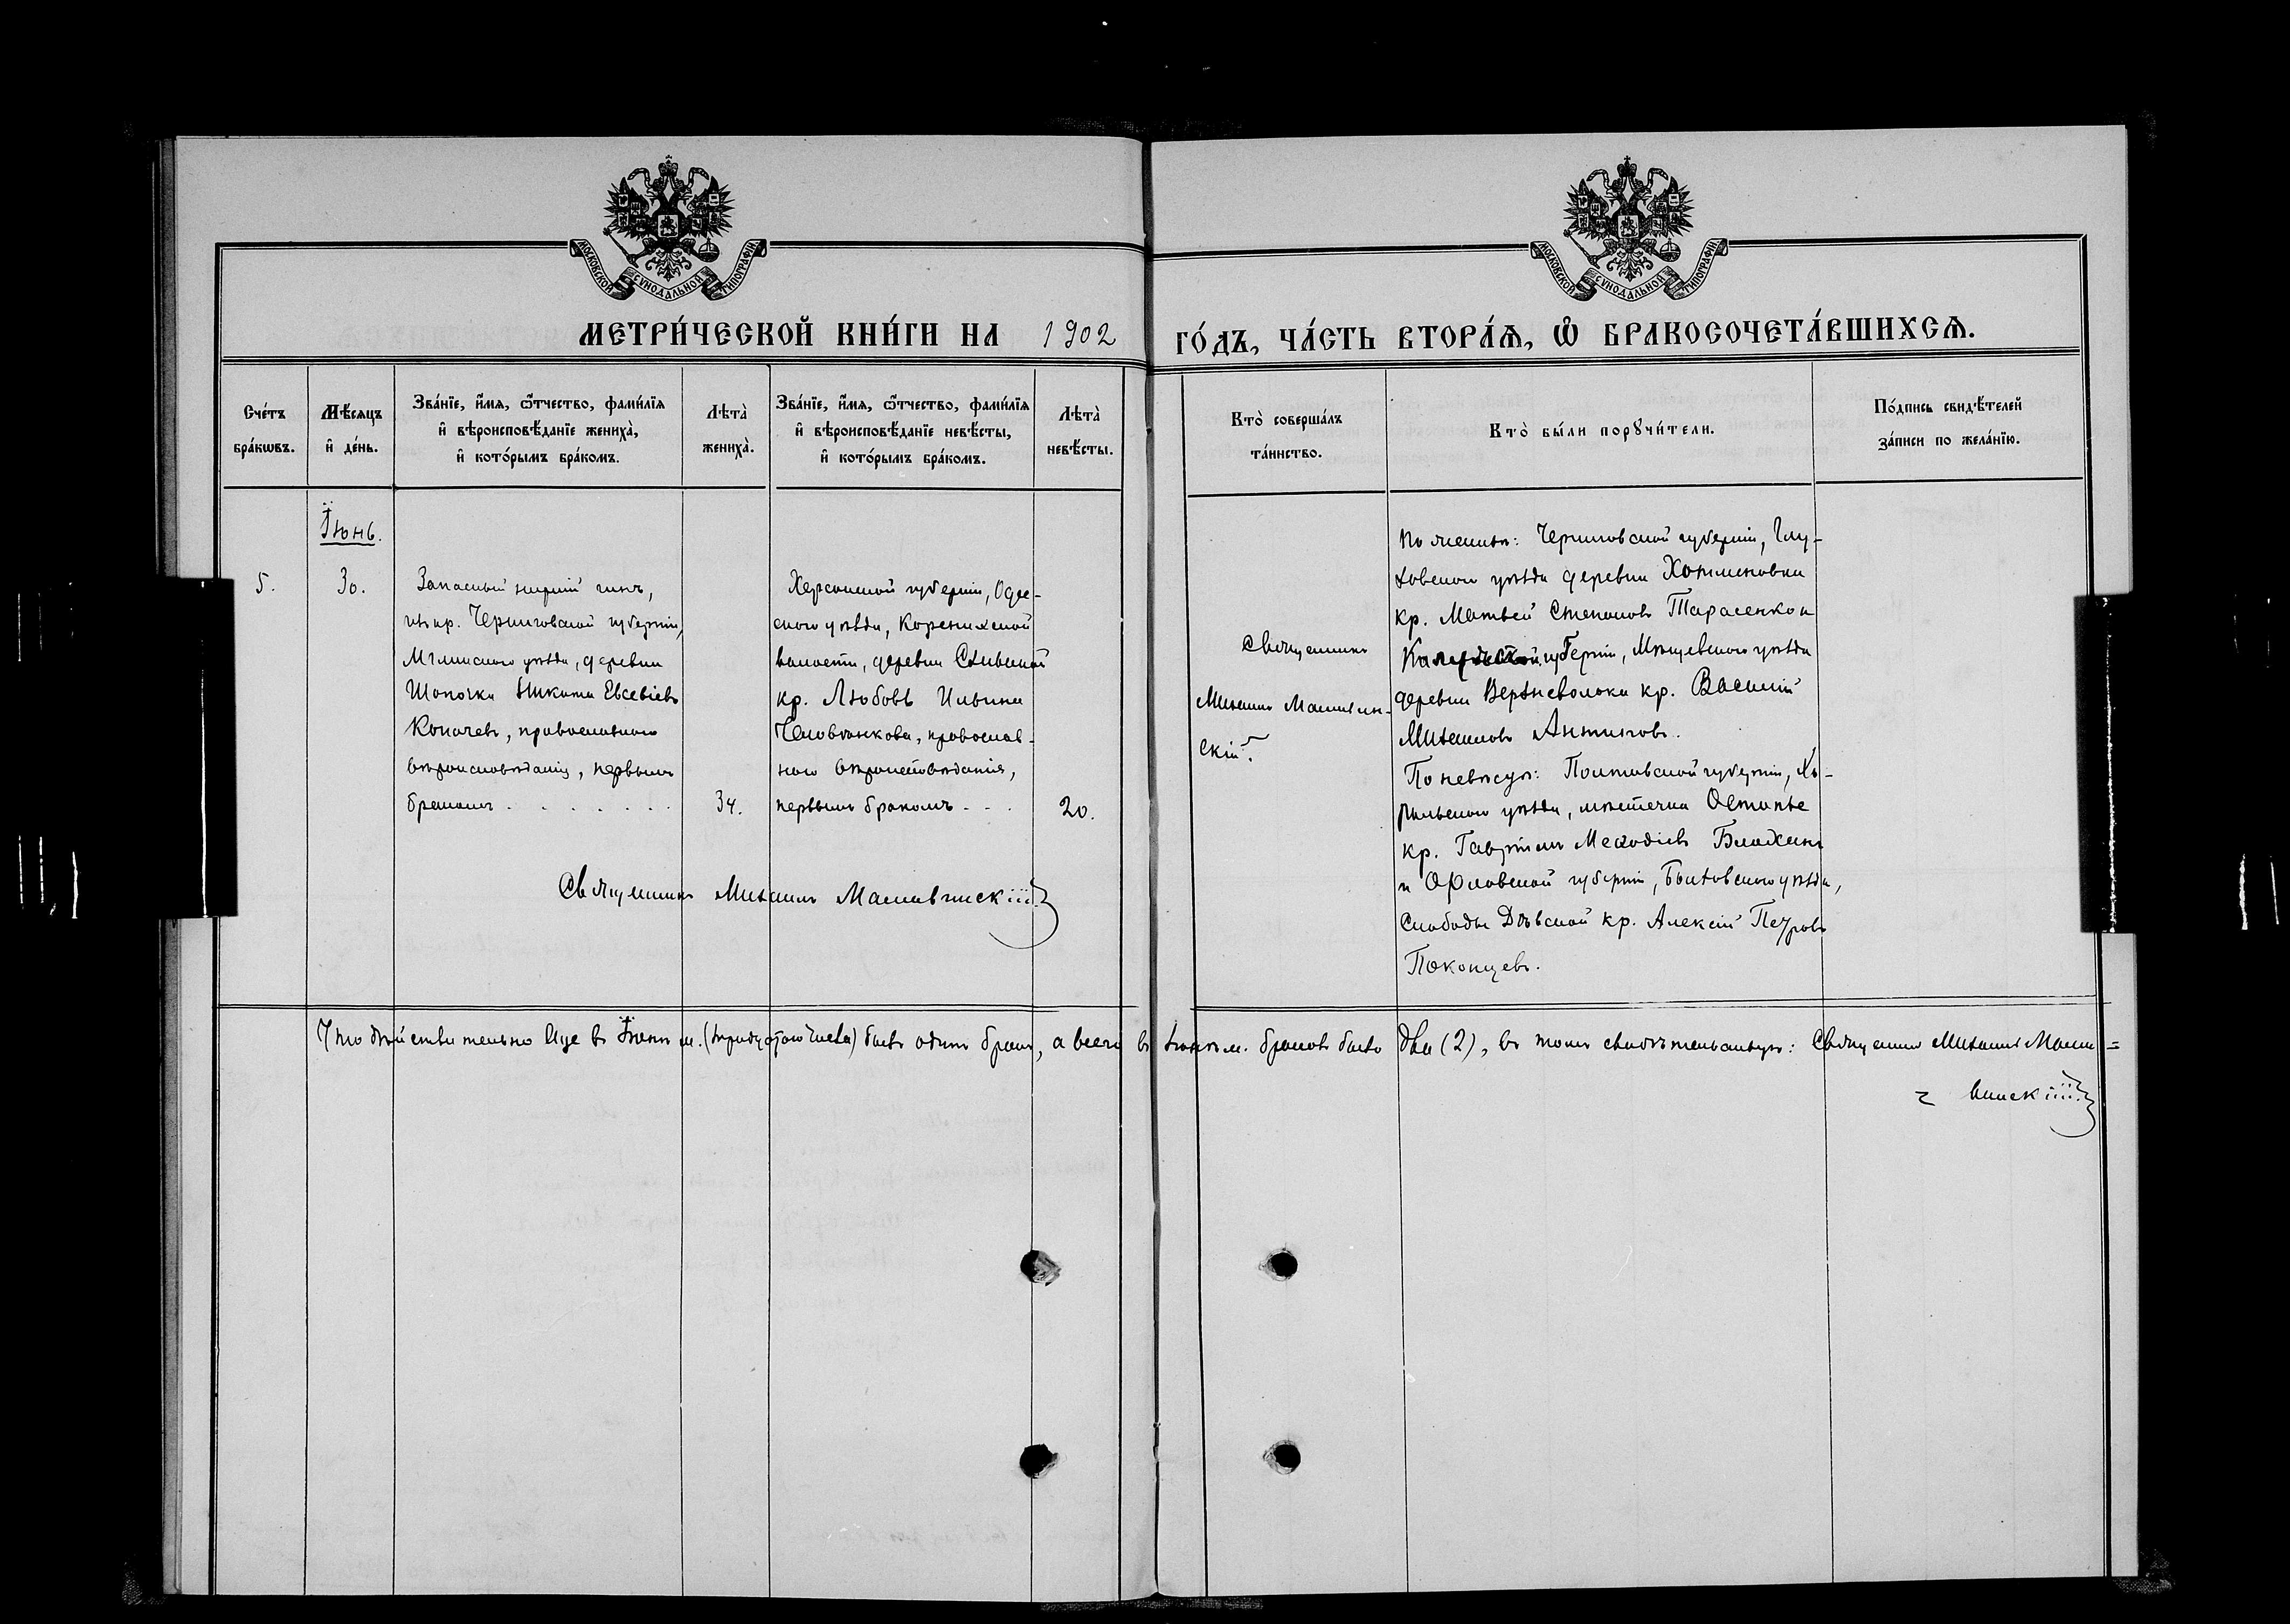 МОСКОВСКОЙ СѴНОДАЛЬНОЙ ТИПОГРАФІИ
МОСКОВСКОЙ СѴНОДАЛЬНОЙ ТИПОГРАФІИ
МЕТРИ́ЧЕСКОЙ КНИ́ГИ НА 1902
ГО́ДЪ, ЧА́СТЬ ВТОРА́Ѧ, Ѽ БРАКОСОЧЕТА́ВШИХСѦ.
Сче́тъ
бра́кѡвъ.
Мѣ́сяцъ
и҆ де́нь.
Зва́нїе, и҆́мѧ, ѻ҆́тчество, фами́лїѧ
и҆ вѣроисповѣ́данїе жениха̀,
и҆ кото́рымъ бра́комъ.
Лѣта̀
жениха̀.
Зва́нїе, и҆́мѧ, ѻ҆́тчество, фами́лїѧ
и҆ вѣроисповѣ́данїе невѣ́сты,
и҆ кото́рымъ бра́комъ.
Лѣта̀
невѣ́сты.
Кто̀ соверша́лъ
та́инство.
Кто̀ бы́ли порꙋчи́тели.
По́дпись свидѣ́телей
за́писи по жела́нїю.
Іюнь.
5.
30.
Запасный нижній чинъ,
изъ кр. Черниговской губерніи,
Мглинскаго уѣзда, деревни
Шопочки Никита Евсевіевъ
Копачевъ, православнаго
вѣроисповѣданія, первымъ
бракомъ . . . . . . .
34.
Херсонской губерніи, Одес-
скаго уѣзда,
волости, деревни
кр. Любовь Ильина
православ-
наго вѣроисповѣданія,
первымъ бракомъ - - .
20.
Священникъ Михаилъ Машивинскій
Священникъ
Михаилъ Машивин-
скій.
По женихѣ: Черниговской губерніи, Глу-
ховскаго уѣзда деревни Хотминовки
кр. Матвей Степановъ Тарасенко и
Калужской губерніи, Мѣщевскаго уѣзда
деревни Верхневолоки кр. Василій
Михаиловъ Антиповъ.
По невѣстѣ: Полтавской губерніи, Хо-
рольскаго уѣзда, мѣстечка Остапье
кр. Гавріилъ Меѳодіевъ Блоха
и Орловской губерніи, Болховскаго уѣзда,
Слободы кр. Алексій Петровъ
Поконцевъ.
Что дѣйствительно еще въ Іюнѣ м. (тридцатаго числа) былъ одинъ бракъ, а всего въ Іюнѣ м. браковъ было два (2), въ томъ свидѣтельствую: Священникъ Михаилъ Маши=
винскій